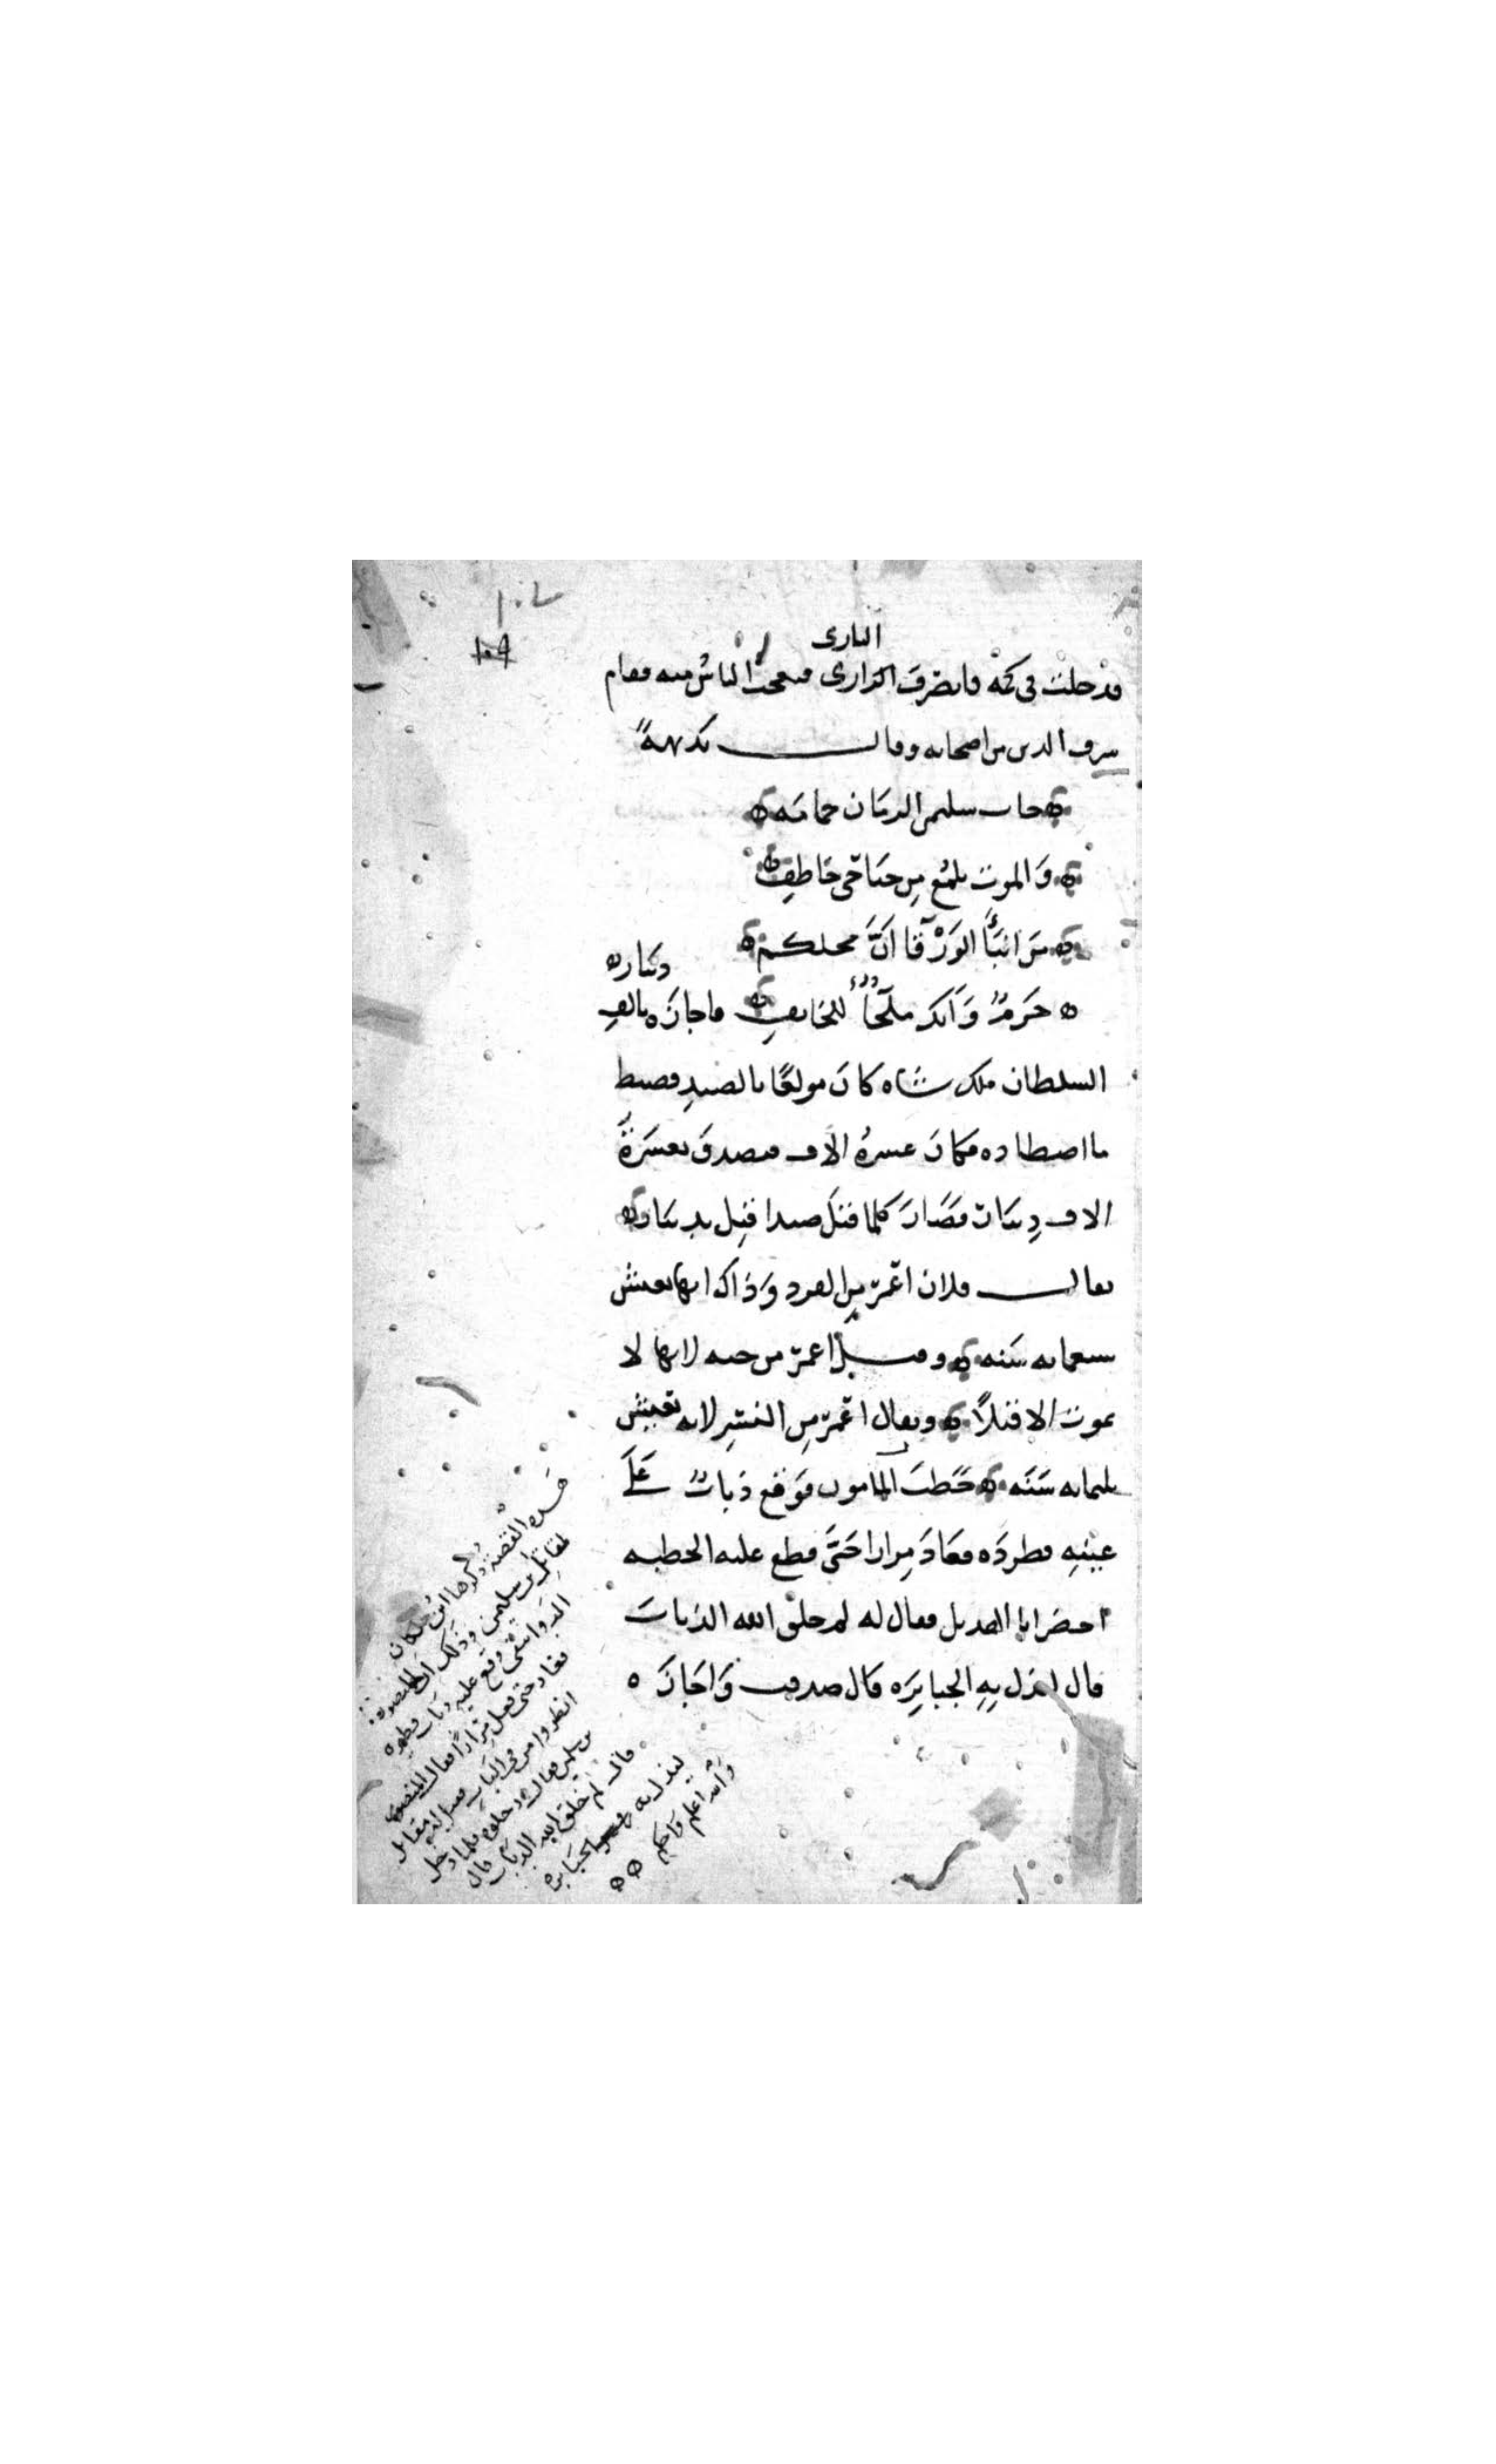 ١٠٩
البازى
فدخلت فى كمه فانصرف البازى فتعجب الناس منه فقام
شرف الدين من اصحابه وقال بديهةً
جات سليمن الزمان حمامه
وَالموت يلمع من جناحى خاطفِ
مَن انبَأَ الوَرْقَا اَنَّ محلكم
حَرَمٌ وَاَنك ملجأ للخايفِ فاجازه بالف
دينار
السلطان ملك شاه كانَ مولعًا بالصيدِ فضبط
ما اصطاده فكانَ عشرهُ الاف فتصدقَ بعشرَة
الاف دينار فصَارَ كلما قتلَ صيدا قبل بدينار
يقال فلان اعمرّ من القرد وَذاك انها تعيش
سبعمايه سَنه وقيل اعمرّ من حيه لانها لا
تموت الا قتلًا ويقال اعمرّ من النسر لانه تعيش
ثلثمايه سَنَه خطبَ المامون فوَقع ذبابٌ عَلَى
عينِه فطردَه فعَادَ مِرارا حَتَّى قطع عليه الخطبه
احضر ابا الهديل فقال له لم خلق الله الذبابَ
قال ليذل بِهِ الجبابِرَه قال صدقت وَاجازَه
هَذه القصة ذكرها ابن خلكان
لمقاتل بن سليمن وَذلك ان المنصور
الدوانيقى وقع عليه ذباب فطيره
فعاد حتى فعل مرارًا فقال المنصور
انظروا من فى البَاب فقيل له مقاتل
بن سليمن فقال ودخلوه فلما دخل
قال لم خلق الله الذباب قال
ليذل به الجبابره
وَالله اعلم وَاحكم